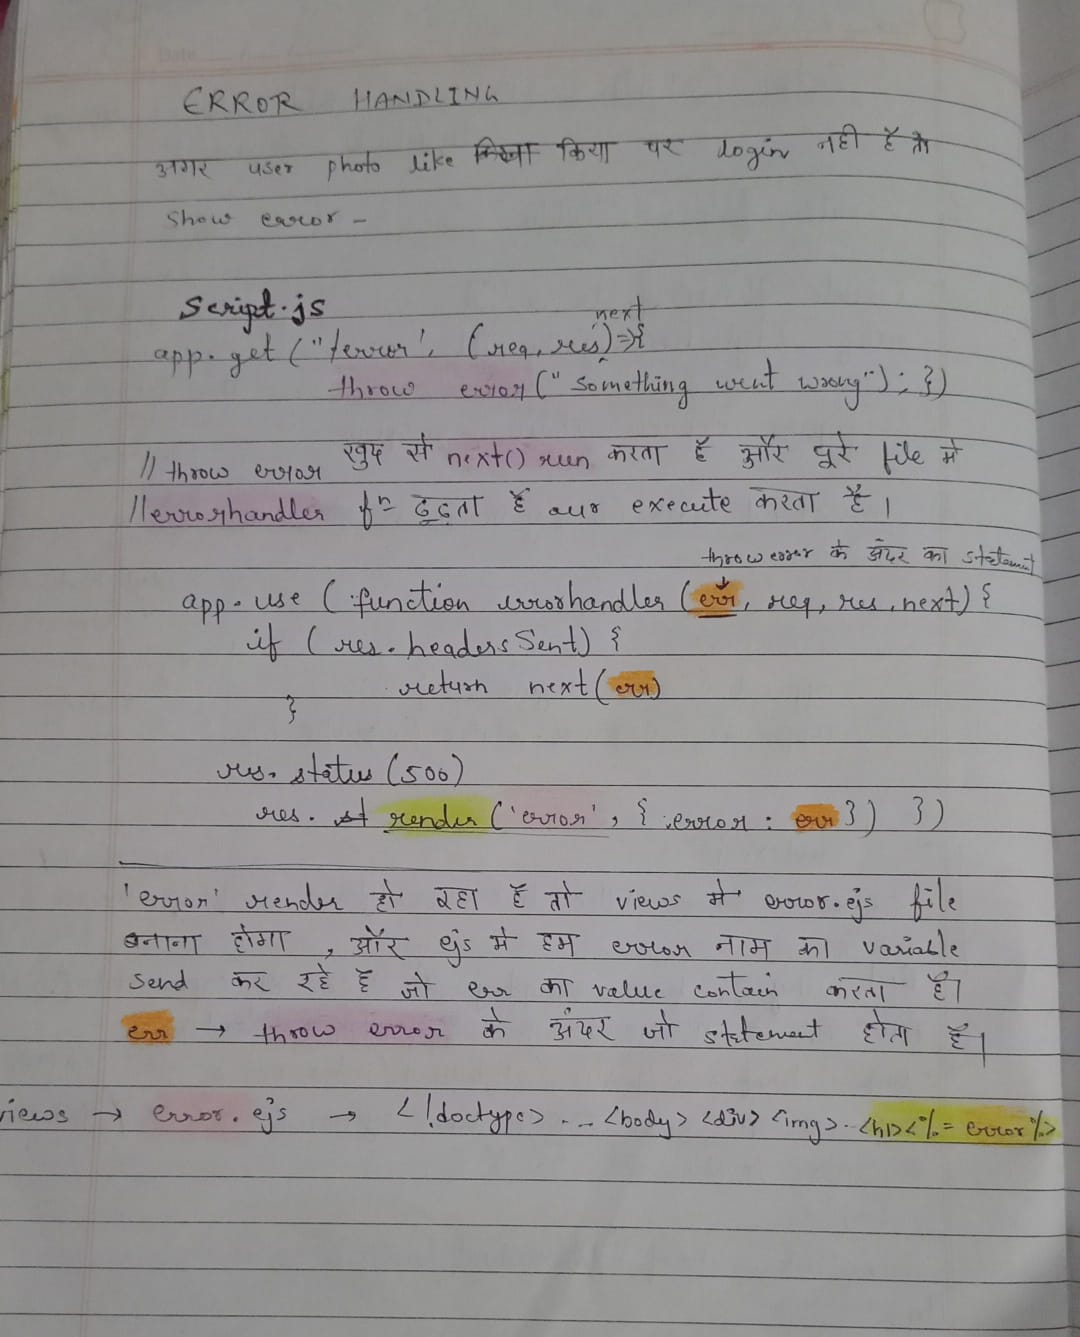 Date
ERROR HANDLING
अगर user photo like किया पर login नही है तो
show error -
Script.js
next
app.get ("/error', (req, res) => {
throw error ("Something went wrong"); })
// throw error खुद से next() run करता है और पूरे file मे
// errorhandler fⁿ ढूढ़ता है aur execute करता है।
throw error के अंदर का statement
app.use ( function errorhandler (err, req, res, next) {
if ( res.headersSent) {
return next(err)
}
res.status (500)
res. render ('error', { error : err }) })
'error' render हो रहा है तो views मे error.ejs file
बनाना होगा , और ejs मे हम error नाम का variable
send कर रहे है जो err का value contain करता है।
err → throw error के अंदर जो statement होता है।
views → error.ejs → <!doctype> ... <body> <div> <img>. <h1><%= error%>